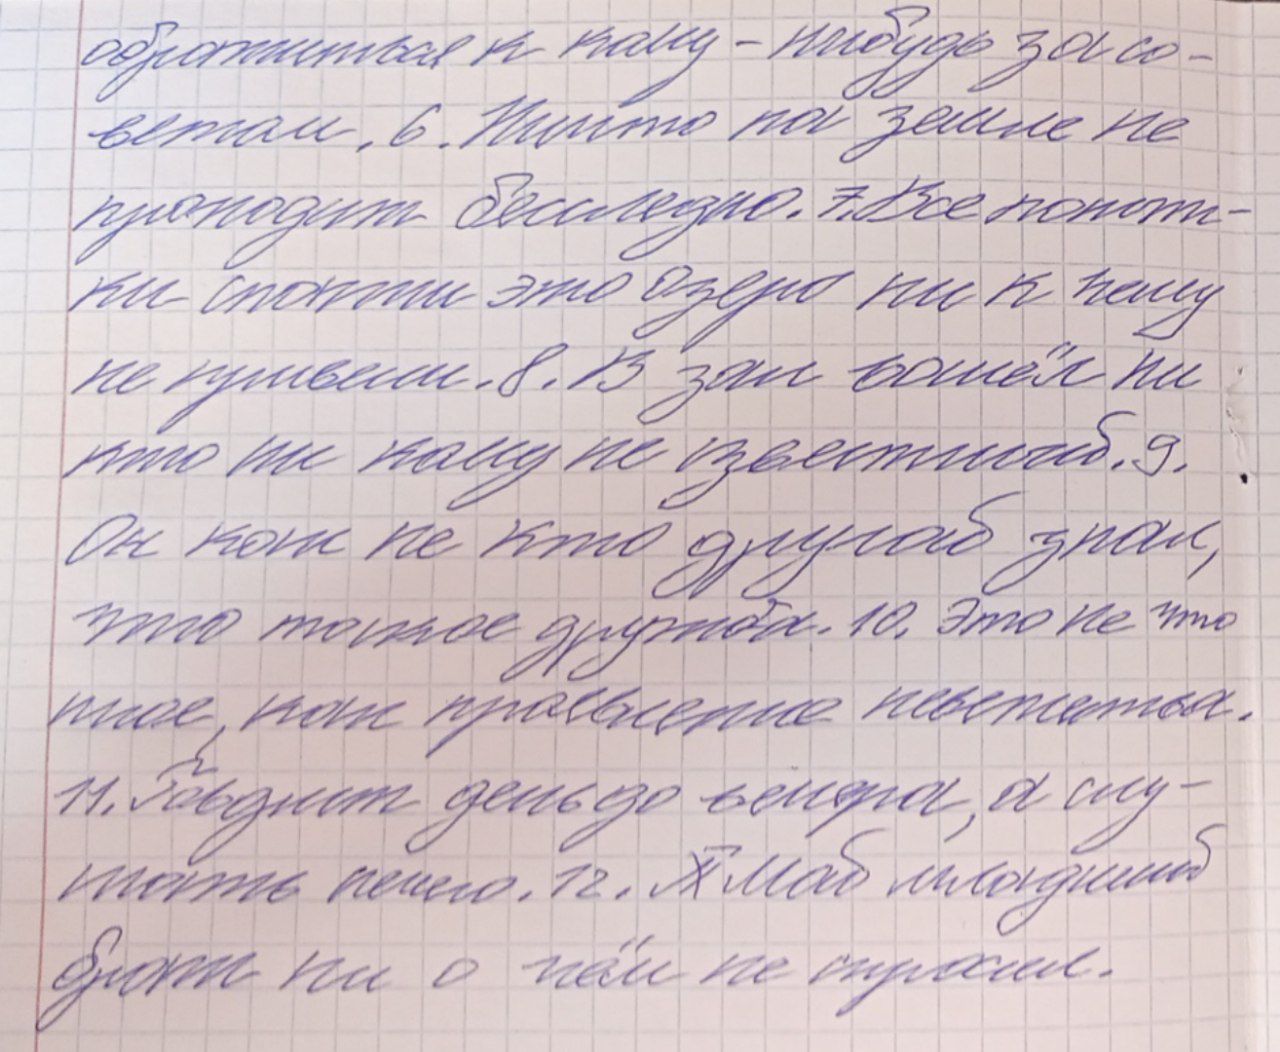 обратиться к кому-нибудь за со-
ветом. 6. Ничто на земле не
проходит бесследно. 7. Все попыт-
ки спасти это озеро ни к чему
не привели. 8. В зал вошёл ни
кто ни кому не известный. 9.
Он как не кто другой знал,
что такое дружба. 10. Это не что
иное, как проявление невежества.
11. Говорит день до вечера, а слу-
шать нечего. 12. Мой младший
брат ни о чём не спросил.